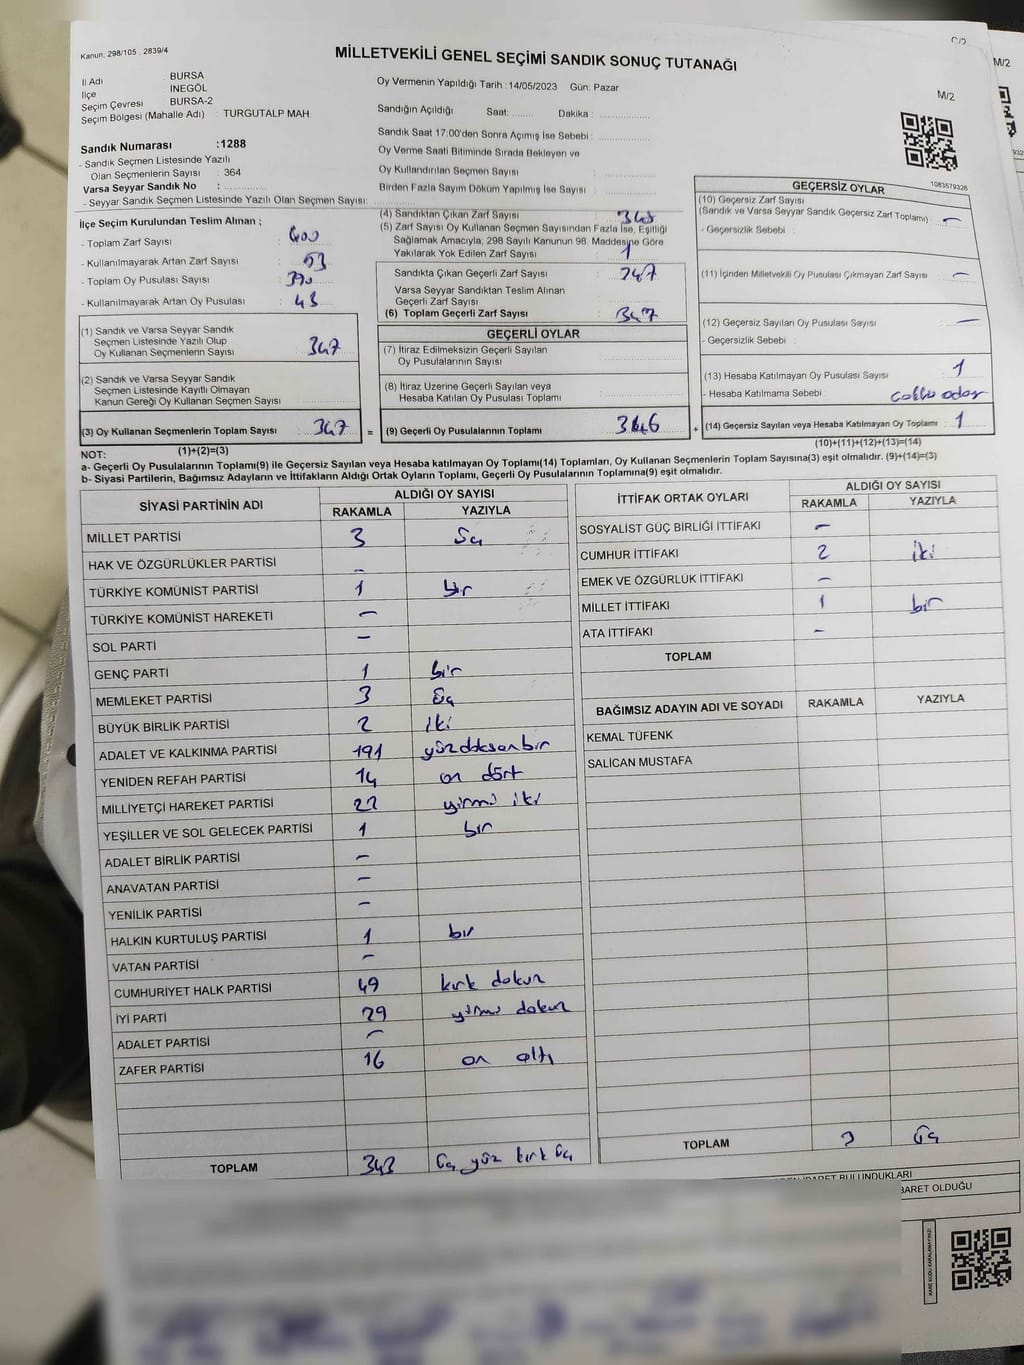 C/2
Kanun: 298/105 , 2839/4
MİLLETVEKİLİ GENEL SEÇİMİ SANDIK SONUÇ TUTANAĞI
M/2
M/2
İl Adı : BURSA
İlçe : İNEGÖL
Seçim Çevresi : BURSA-2
Seçim Bölgesi (Mahalle Adı) : TURGUTALP MAH.
Oy Vermenin Yapıldığı Tarih : 14/05/2023 Gün: Pazar
Sandığın Açıldığı Saat: ........ Dakika : ................
Sandık Saat 17:00'den Sonra Açımış İse Sebebi : ................
Oy Verme Saati Bitiminde Sırada Bekleyen ve
Oy Kullandırılan Seçmen Sayısı : ................
Birden Fazla Sayım Döküm Yapılmış İse Sayısı : ................
Sandık Numarası :1288
- Sandık Seçmen Listesinde Yazılı
Olan Seçmenlerin Sayısı : 364
Varsa Seyyar Sandık No : ................
- Seyyar Sandık Seçmen Listesinde Yazılı Olan Seçmen Sayısı: ................
1083579326
İlçe Seçim Kurulundan Teslim Alınan ;
- Toplam Zarf Sayısı : 400
- Kullanılmayarak Artan Zarf Sayısı : 53
- Toplam Oy Pusulası Sayısı : 390
- Kullanılmayarak Artan Oy Pusulası : 43
(1) Sandık ve Varsa Seyyar Sandık
Seçmen Listesinde Yazılı Olup
Oy Kullanan Seçmenlerin Sayısı : 347
(2) Sandık ve Varsa Seyyar Sandık
Seçmen Listesinde Kayıtlı Olmayan
Kanun Gereği Oy Kullanan Seçmen Sayısı
(3) Oy Kullanan Seçmenlerin Toplam Sayısı : 347 =
(1)+(2)=(3)
(4) Sandıktan Çıkan Zarf Sayısı : 348
(5) Zarf Sayısı Oy Kullanan Seçmen Sayısından Fazla İse, Eşitliği
Sağlamak Amacıyla; 298 Sayılı Kanunun 98. Maddesine Göre
Yakılarak Yok Edilen Zarf Sayısı : 1
Sandıkta Çıkan Geçerli Zarf Sayısı : 347
Varsa Seyyar Sandıktan Teslim Alınan
Geçerli Zarf Sayısı
(6) Toplam Geçerli Zarf Sayısı : 347
GEÇERLİ OYLAR
(7) İtiraz Edilmeksizin Geçerli Sayılan
Oy Pusulalarının Sayısı
(8) İtiraz Üzerine Geçerli Sayılan veya
Hesaba Katılan Oy Pusulası Toplamı
(9) Geçerli Oy Pusulalarının Toplamı : 346 +
GEÇERSİZ OYLAR
(10) Geçersiz Zarf Sayısı
(Sandık ve Varsa Seyyar Sandık Geçersiz Zarf Toplamı) : -
- Geçersizlik Sebebi :
(11) İçinden Milletvekili Oy Pusulası Çıkmayan Zarf Sayısı : -
(12) Geçersiz Sayılan Oy Pusulası Sayısı : -
- Geçersizlik Sebebi :
(13) Hesaba Katılmayan Oy Pusulası Sayısı : 1
- Hesaba Katılmama Sebebi :
(14) Geçersiz Sayılan veya Hesaba Katılmayan Oy Toplamı : 1
(10)+(11)+(12)+(13)=(14)
NOT:
a- Geçerli Oy Pusulalarının Toplamı(9) ile Geçersiz Sayılan veya Hesaba katılmayan Oy Toplamı(14) Toplamları, Oy Kullanan Seçmenlerin Toplam Sayısına(3) eşit olmalıdır. (9)+(14)=(3)
b- Siyasi Partilerin, Bağımsız Adayların ve İttifakların Aldığı Ortak Oyların Toplamı, Geçerli Oy Pusulalarının Toplamına(9) eşit olmalıdır.
SİYASİ PARTİNİN ADI ALDIĞI OY SAYISI
RAKAMLA YAZIYLA
MİLLET PARTİSİ 3 üç
HAK VE ÖZGÜRLÜKLER PARTİSİ -
TÜRKİYE KOMÜNİST PARTİSİ 1 bir
TÜRKİYE KOMÜNİST HAREKETİ -
SOL PARTİ -
GENÇ PARTİ 1 bir
MEMLEKET PARTİSİ 3 üç
BÜYÜK BİRLİK PARTİSİ 2 iki
ADALET VE KALKINMA PARTİSİ 191 yüzdoksanbir
YENİDEN REFAH PARTİSİ 14 on dört
MİLLİYETÇİ HAREKET PARTİSİ 22 yirmi iki
YEŞİLLER VE SOL GELECEK PARTİSİ 1 bir
ADALET BİRLİK PARTİSİ -
ANAVATAN PARTİSİ -
YENİLİK PARTİSİ -
HALKIN KURTULUŞ PARTİSİ 1 bir
VATAN PARTİSİ -
CUMHURİYET HALK PARTİSİ 49 kırk dokuz
İYİ PARTİ 29 yirmi dokuz
ADALET PARTİSİ -
ZAFER PARTİSİ 16 on altı
TOPLAM 343 üç yüz kırk üç
İTTİFAK ORTAK OYLARI ALDIĞI OY SAYISI
RAKAMLA YAZIYLA
SOSYALİST GÜÇ BİRLİĞİ İTTİFAKI -
CUMHUR İTTİFAKI 2 iki
EMEK VE ÖZGÜRLÜK İTTİFAKI -
MİLLET İTTİFAKI 1 bir
ATA İTTİFAKI -
TOPLAM
BAĞIMSIZ ADAYIN ADI VE SOYADI RAKAMLA YAZIYLA
KEMAL TÜFENK
SALİCAN MUSTAFA
TOPLAM 3 üç
BULUNDUKLARI
BARET OLDUĞU